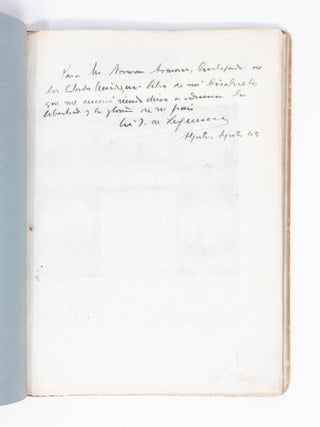 Para Mr. Norman Armour, Embajador de
los Estados Unidos, un libro de mi bisabuelo
que me enseñó siendo chico a admirar la
libertad y la gloria de su país
de
Agosto 45